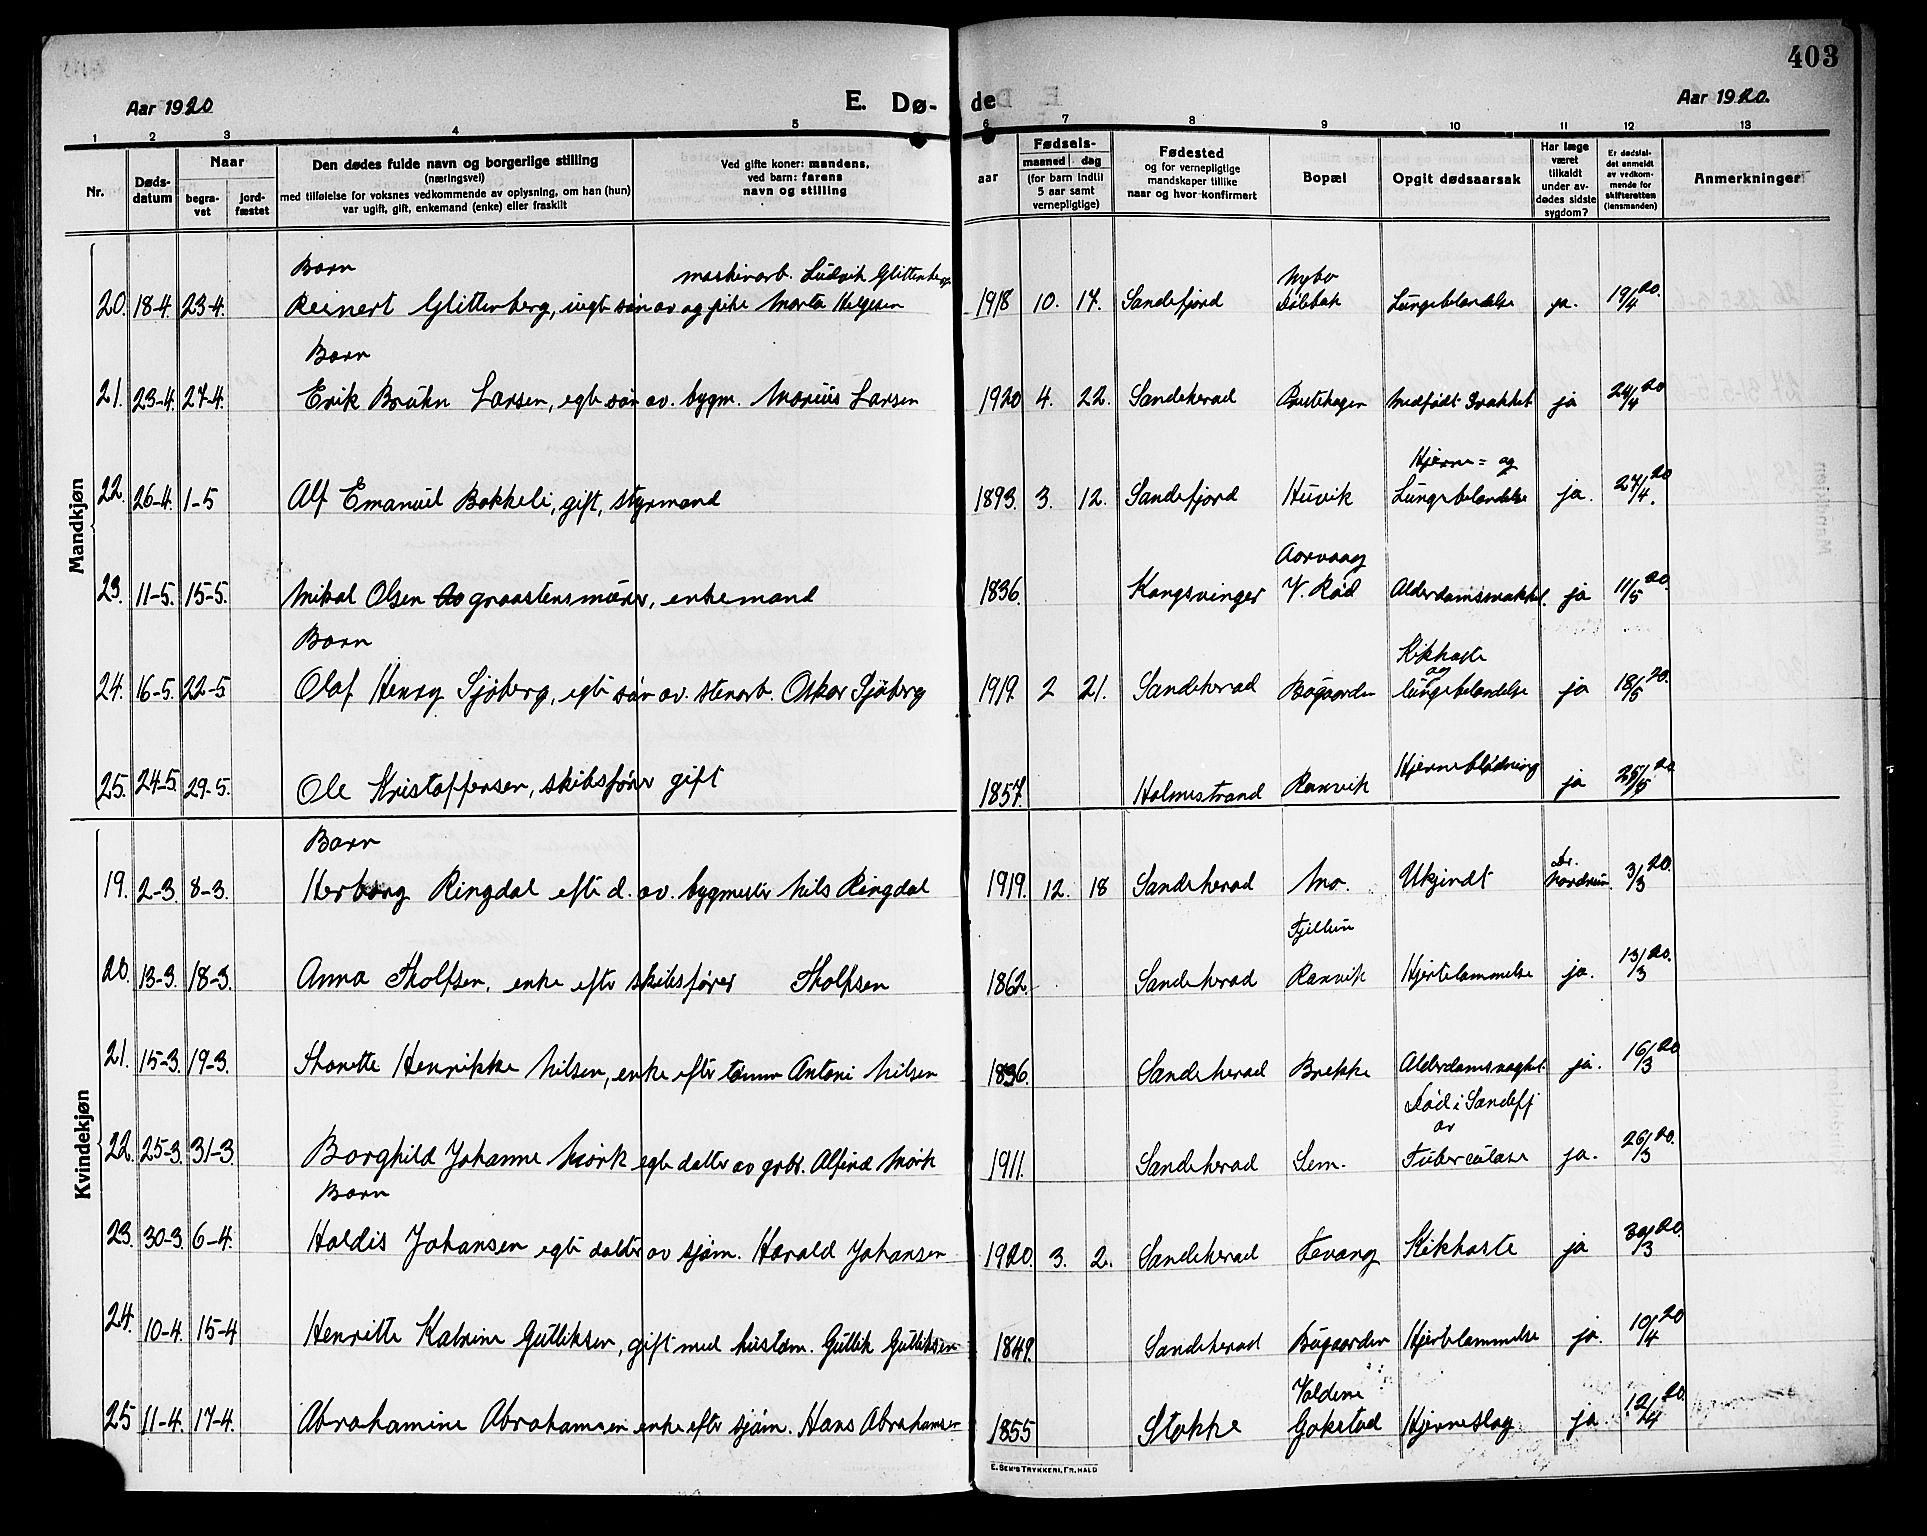 403
Aar 1920
E. Dø- de
Aar 1920.
1 2 3 4 5 6 7 8 9 10 11 12 13
Nr.
Døds-
datum
Naar
begra-
vet
jord-
fæstet
Den dødes fulde navn og borgerlige stilling
(næringsvei)
med tilføielse for voksnes vedkommende av oplysning, om han (hun)
var ugift, gift, enkemand (enke) eller fraskilt
Ved gifte koner: mandens,
ved barn: farens
navn og stilling
Fødsels-
aar
maaned dag
(for barn indtil
5 aar samt
vernepligtige)
Fødested
og for vernepligtige
mandskaper tillike
naar og hvor konfirmert
Bopæl
Opgit dødsaarsak
Har læge
været
tilkaldt
under av-
dødes sidste
sygdom?
Er dødsfal-
det anmeldt
av vedkom-
mende for
skifteretten
(lensmanden)
Anmerkninger
Mandkjøn
Barn maskinarb. Ludvik Glittenberg Nybo
20. 18-4. 23-4. Reinert Glittenberg, uegte søn av og pike Marta Helgesen 1918 10. 17. Sandefjord Lungebetændelse ja. 19/4 20.
Barn
21. 23-4. 27-4. Erik Bruhn Larsen, egte søn av. bygm. Marius Larsen 1920 4. 22. Sandeherad Medfødt svakhet ja 24/4 20
Hjerne- og
22. 26-4. 1-5 Alf Emanuel Bakkeli, gift, styrmand 1893. 3. 12. Sandefjord Huvik Lungebetændelse ja. 27/4. 20
Aarvaag
23. 11-5. 15-5. Mikal Olsen graastensmurer, enkemand 1836. Kongsvinger V. Rød Alderdomssvakhet. ja 11/5 20.
Barn Kikhoste
og
24. 16-5. 22-5 Olaf Henry Sjøberg, egte søn av. stenarb. Oskar Sjøberg 1919. 2 21. Sandeherad Bøgaarden lungebetændelse ja 18/5 20.
25. 24-5. 29-5. Ole Kristoffersen, skibsfører gift 1857. Holmestrand Ranvik Hjerneblødning ja 25/5 20
Kvindekjøn
Barn Dr.
19. 2-3. 8-3. Herborg Ringdal efte d. av. bygmester Nils Ringdal 1919. 12. 18 Sandeherad Mo. Ukjendt Nordrum 3/3 20.
Fjellum
20. 13-3. 18-3. Anna Tholfsen, enke efter skibsfører Tholfsen 1862. Sandeherad Ranvik Hjertelammelse ja. 13/3 20.
21. 15-3. 19-3. Thorette Henrikke Nilsen, enke efter tømm Antoni Nilsen 1836. Sandeherad Brekke Alderdomsvaghet. ja. 16/3 20
Død i Sandefj
av
22. 25-3. 31-3. Borghild Johanne Mørk egte datter av grbr. Alfred Mørk 1911. Sandeherad Sem. Tuberculose ja. 26/3 20.
Barn
23. 30-3. 6-4. Haldis Johansen egte datter av sjøm. Harald Johansen 1920. 3. 2. Sandeherad Fevang Kikhoste ja 30/3 20.
24. 10-4. 15-4 Henritte Katrine Gulliksen, gift med hustøm. Gullik Gulliksen 1849. Sandeherad Bugaarden Hjertelammelse ja. 10/4 20
Valdene
25 11-4. 17-4. Abrahamine Abrahamsen enke efter sjøm. Hans Abrahamsen 1855 Stokke Gokstad Hjerneslag ja 12/4 20.
E. SEM'S TRYKKERI, FR. HALD